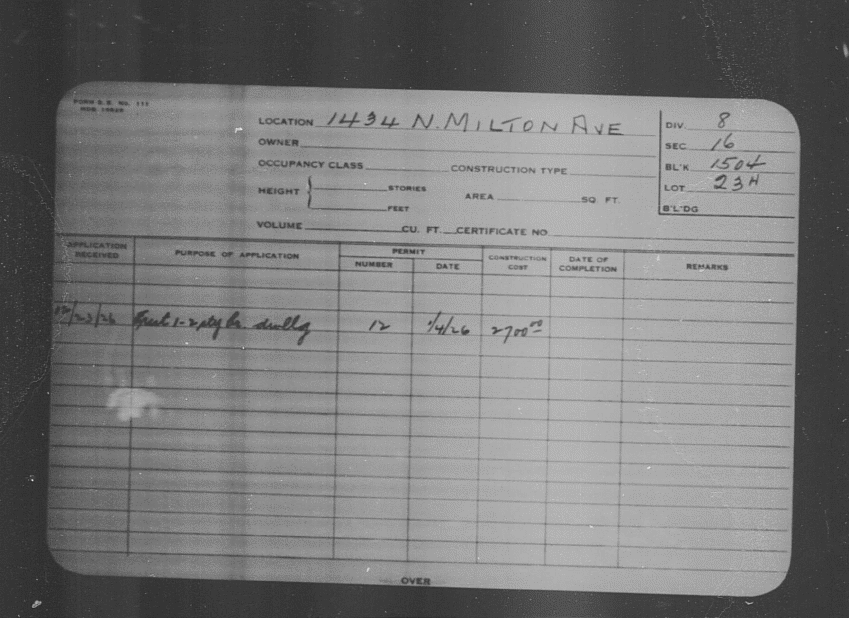 FORM S.B. No. 112
LOCATION 1434 N. MILTON AVE
DIV. 8
OWNER
SEC 16
OCCUPANCY CLASS CONSTRUCTION TYPE
BL'K 1504
HEIGHT { STORIES AREA SQ. FT.
LOT 23H
FEET
B'L'DG
VOLUME CU. FT. CERTIFICATE NO.
APPLICATION RECEIVED PURPOSE OF APPLICATION PERMIT NUMBER DATE CONSTRUCTION COST DATE OF COMPLETION REMARKS
12/23/26 Erect 1-2 sty br. dwllg 12 1/4/26 2700.00
OVER